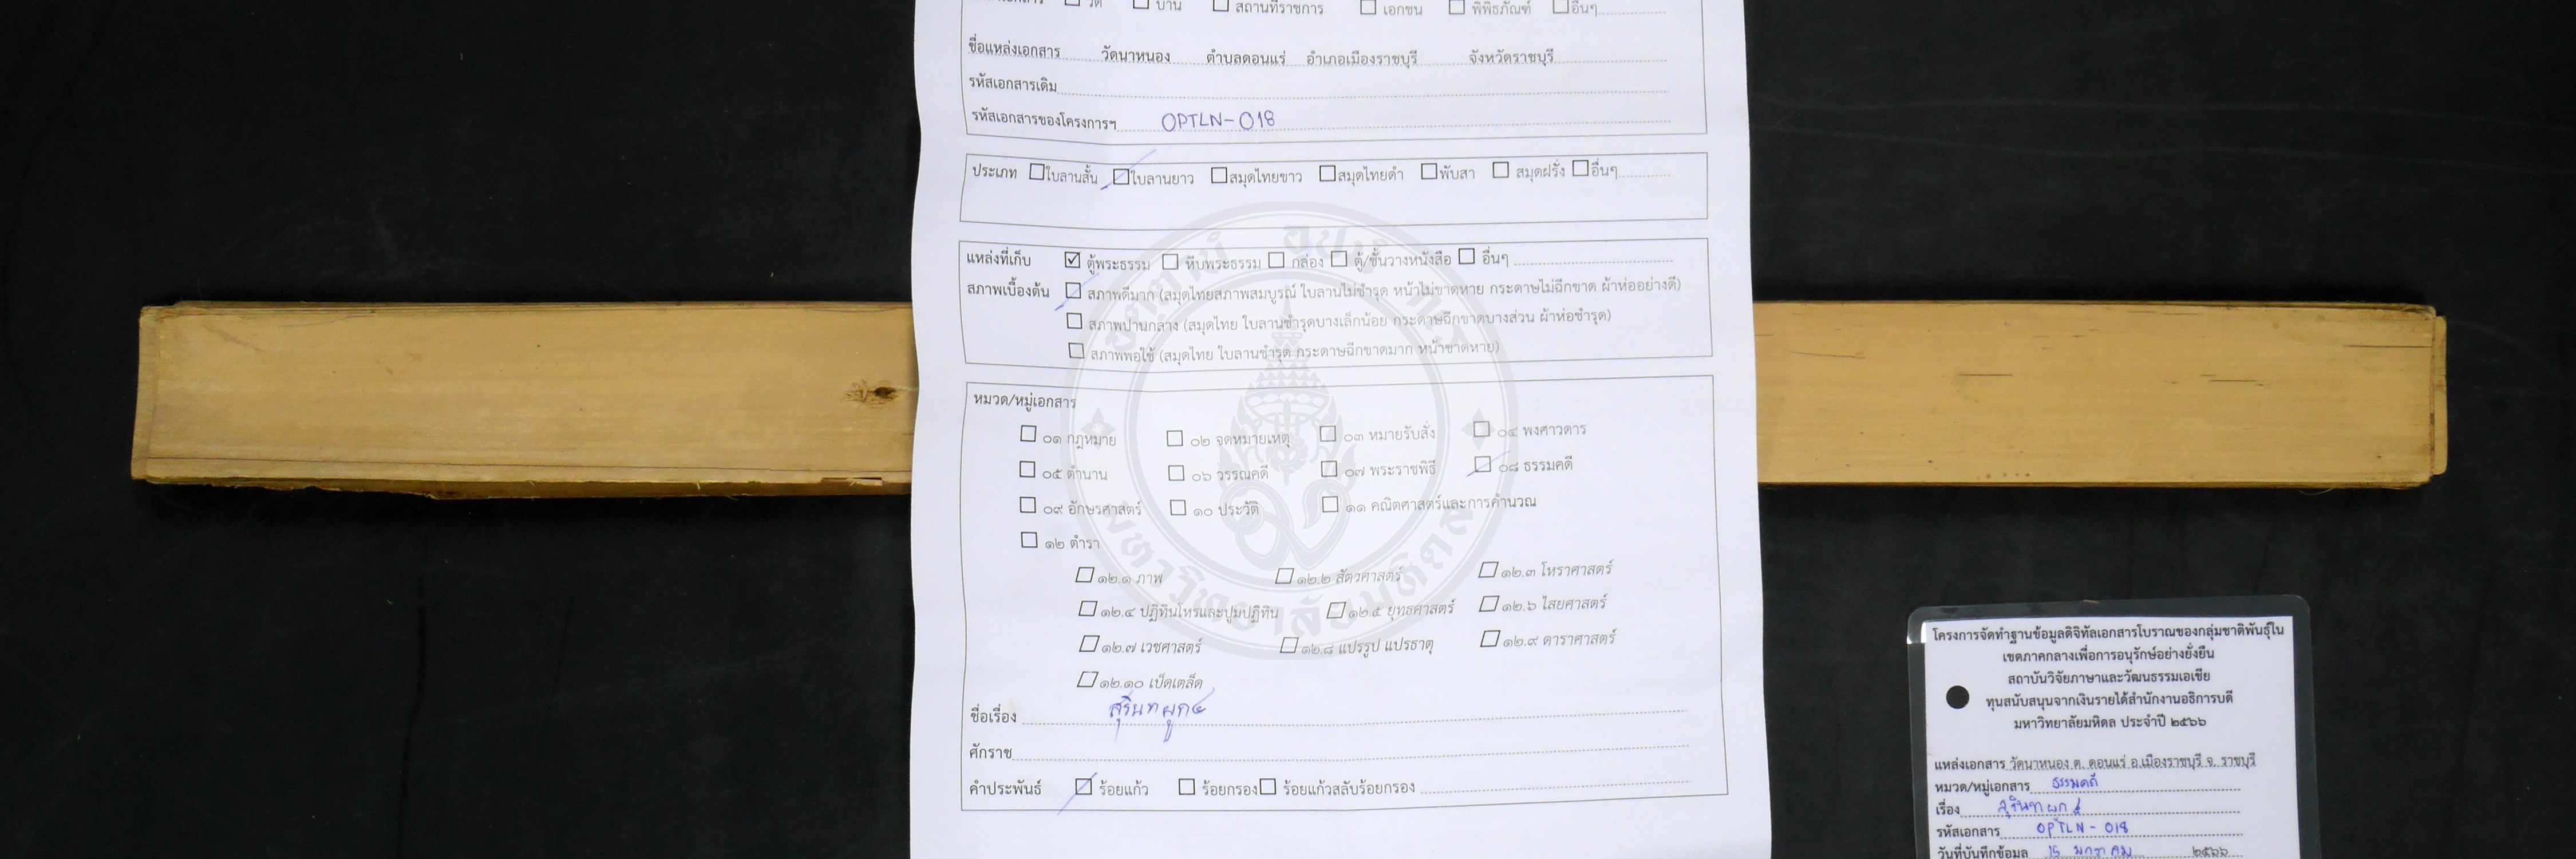 ☐ วัด ☐ บ้าน ☐ สถานที่ราชการ ☐ เอกชน ☐ พิพิธภัณฑ์ ☐ อื่นๆ
ชื่อแหล่งเอกสาร วัดนาหนอง ตำบลดอนแร่ อำเภอเมืองราชบุรี จังหวัดราชบุรี
รหัสเอกสารเดิม
รหัสเอกสารของโครงการฯ OPTLN-018
ประเภท ☐ ใบลานสั้น ☑ ใบลานยาว ☐ สมุดไทยขาว ☐ สมุดไทยดำ ☐ พับสา ☐ สมุดฝรั่ง ☐ อื่นๆ
แหล่งที่เก็บ ☑ ตู้พระธรรม ☐ หีบพระธรรม ☐ กล่อง ☐ ตู้/ชั้นวางหนังสือ ☐ อื่นๆ
สภาพเบื้องต้น ☑ สภาพดีมาก (สมุดไทยสภาพสมบูรณ์ ใบลานไม่ชำรุด หน้าไม่ขาดหาย กระดาษไม่ฉีกขาด ผ้าห่ออย่างดี)
☐ สภาพปานกลาง (สมุดไทย ใบลานชำรุดบางเล็กน้อย กระดาษฉีกขาดบางส่วน ผ้าห่อชำรุด)
☐ สภาพพอใช้ (สมุดไทย ใบลานชำรุด กระดาษฉีกขาดมาก หน้าขาดหาย)
หมวด/หมู่เอกสาร
☐ ๐๑ กฎหมาย ☐ ๐๒ จดหมายเหตุ ☐ ๐๓ หมายรับสั่ง ☐ ๐๔ พงศาวดาร
☐ ๐๕ ตำนาน ☐ ๐๖ วรรณคดี ☐ ๐๗ พระราชพิธี ☑ ๐๘ ธรรมคดี
☐ ๐๙ อักษรศาสตร์ ☐ ๑๐ ประวัติ ☐ ๑๑ คณิตศาสตร์และการคำนวณ
☐ ๑๒ ตำรา
☐ ๑๒.๑ ภาพ ☐ ๑๒.๒ สัตวศาสตร์ ☐ ๑๒.๓ โหราศาสตร์
☐ ๑๒.๔ ปฏิทินโหรและปูมปฏิทิน ☐ ๑๒.๕ ยุทธศาสตร์ ☐ ๑๒.๖ ไสยศาสตร์
☐ ๑๒.๗ เวชศาสตร์ ☐ ๑๒.๘ แปรรูป แปรธาตุ ☐ ๑๒.๙ ดาราศาสตร์
☐ ๑๒.๑๐ เบ็ดเตล็ด
ชื่อเรื่อง สุรินท ผูก๔
ศักราช
คำประพันธ์ ☑ ร้อยแก้ว ☐ ร้อยกรอง ☐ ร้อยแก้วสลับร้อยกรอง
มหาวิทยาลัยมหิดล
โครงการจัดทำฐานข้อมูลดิจิทัลเอกสารโบราณของกลุ่มชาติพันธุ์ใน
เขตภาคกลางเพื่อการอนุรักษ์อย่างยั่งยืน
สถาบันวิจัยภาษาและวัฒนธรรมเอเชีย
ทุนสนับสนุนจากเงินรายได้สำนักงานอธิการบดี
มหาวิทยาลัยมหิดล ประจำปี ๒๕๖๖
แหล่งเอกสาร วัดนาหนอง ต. ดอนแร่ อ.เมืองราชบุรี จ. ราชบุรี
หมวด/หมู่เอกสาร ธรรมคดี
เรื่อง สุรินท ผูก ๔
รหัสเอกสาร OPTLN - 018
วันที่บันทึกข้อมูล 15 มกราคม ๒๕๖๖